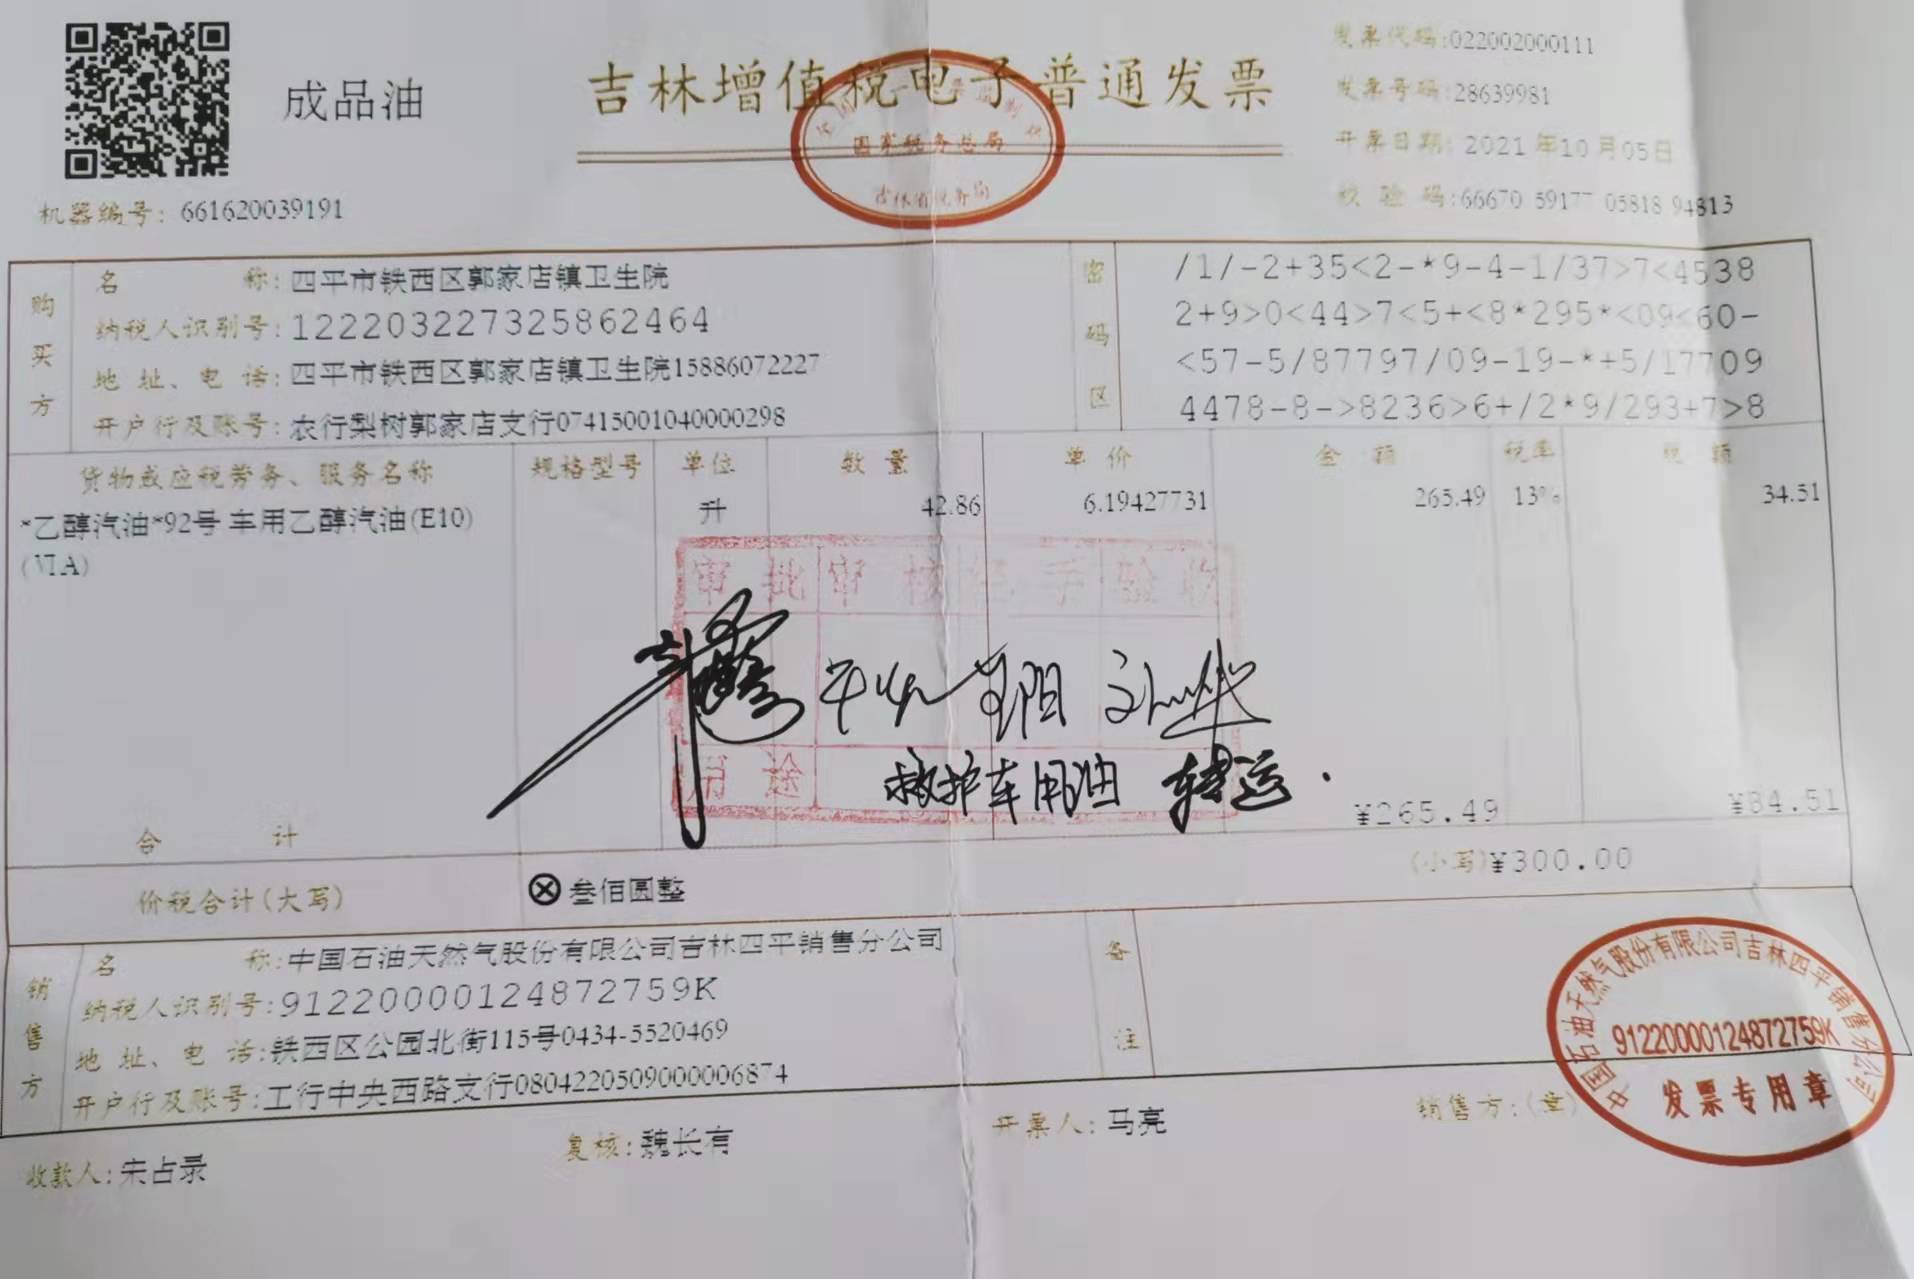 成品油
吉林增值税电子普通发票
国家税务总局
吉林省税务局
发票代码:022002000111
发票号码:28639981
开票日期: 2021年10月05日
校 验 码:66670 59177 05818 94813
机器编号: 661620039191
购买方
名 称: 四平市铁西区郭家店镇卫生院
纳税人识别号: 122203227325862464
地 址、电 话: 四平市铁西区郭家店镇卫生院15886072227
开户行及账号: 农行梨树郭家店支行07415001040000298
密码区
/1/-2+35<2-*9-4-1/37>7<4538
2+9>0<44>7<5+<8*295*<09<60-
<57-5/87797/09-19-*+5/17709
4478-8->8236>6+/2*9/293+7>8
货物或应税劳务、服务名称 规格型号 单位 数 量 单 价 金 额 税率 税 额
*乙醇汽油*92号 车用乙醇汽油(E10) 升 42.86 6.19427731 265.49 13% 34.51
(VIA)
审 批 审 核 经 手 验 收
用 途
救护车用油 转运.
合 计 ¥265.49 ¥34.51
价税合计(大写) ⊗叁佰圆整 (小写)¥300.00
销售方
名 称:中国石油天然气股份有限公司吉林四平销售分公司
纳税人识别号:91220000124872759K
地 址、电 话:铁西区公园北街115号0434-5520469
开户行及账号:工行中央西路支行0804220509000006874
备注
中国石油天然气股份有限公司吉林四平销售分公司
91220000124872759K
发票专用章
收款人: 宋占录 复核: 魏长有 开票人: 马亮 销售方: (章)